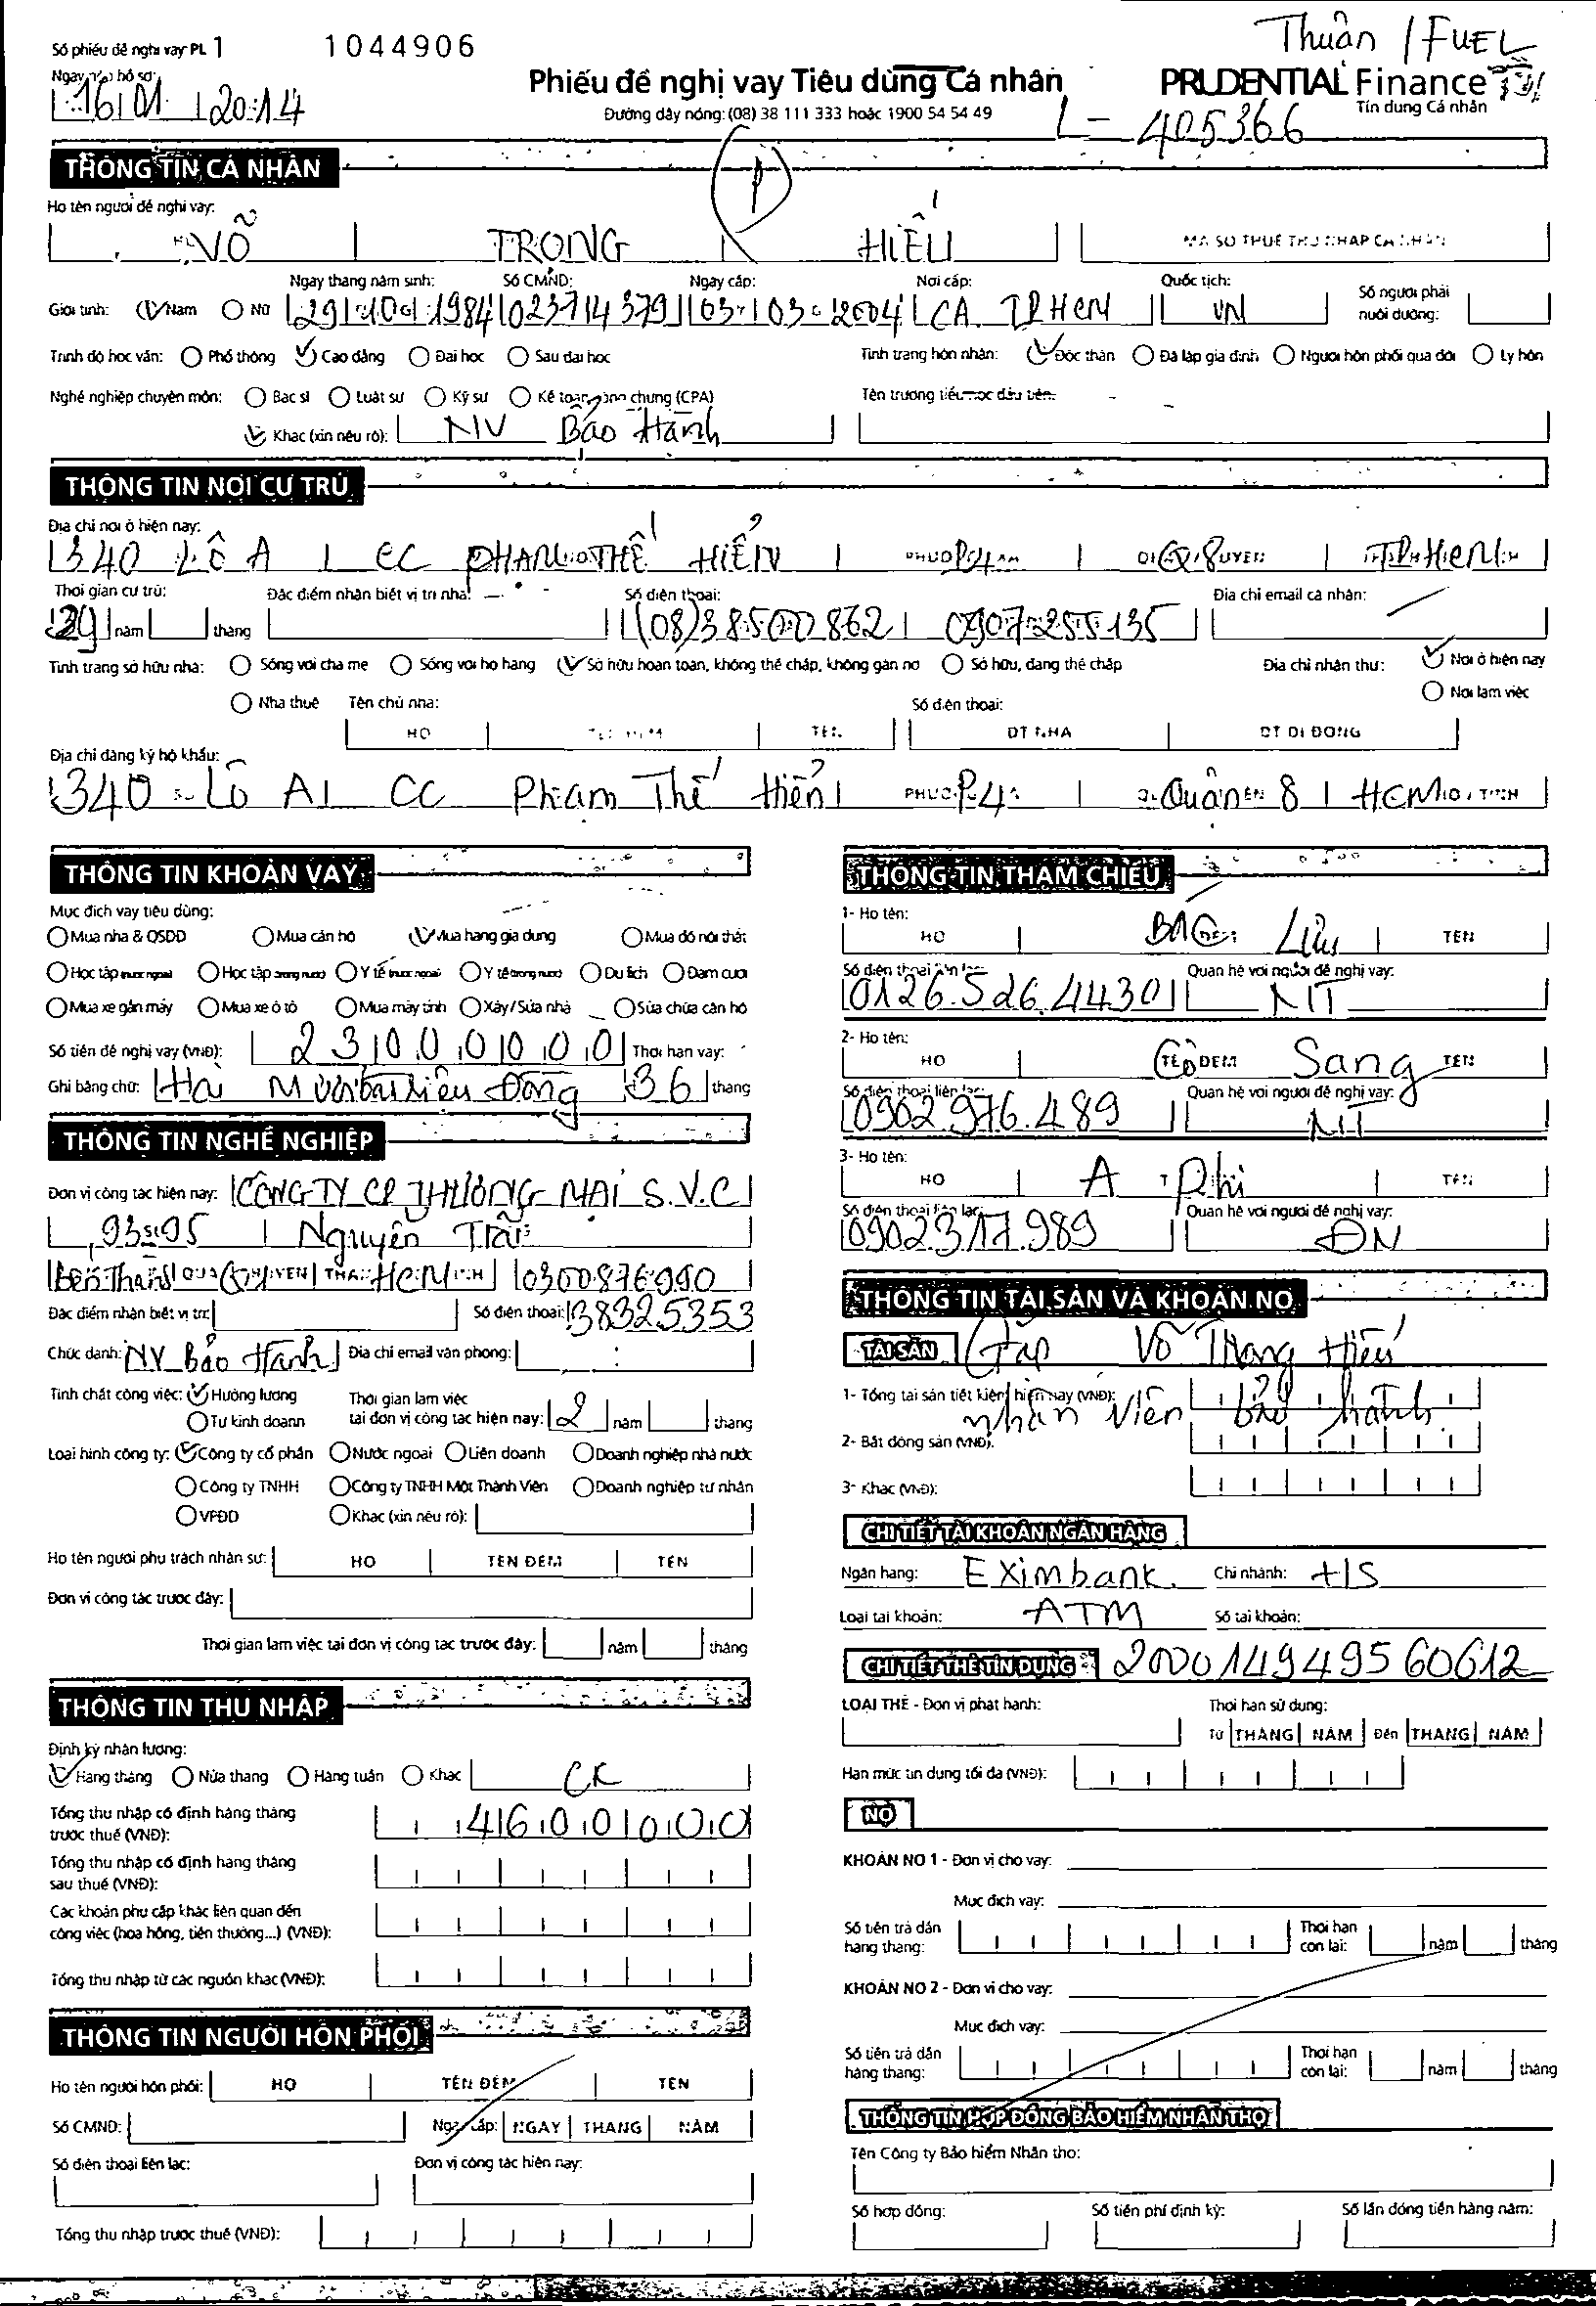 Số phiếu đề nghị vay PL 1 1044906
Thuân / FUEL
Ngày nộp hồ sơ:
16 01 2014
Phiếu đề nghị vay Tiêu dùng Cá nhân
PRUDENTIAL Finance
Đường dây nóng: (08) 38 111 333 hoặc 1900 54 54 49
Tín dụng Cá nhân
L - 405366
THÔNG TIN CÁ NHÂN
Họ tên người đề nghị vay:
VÕ TRỌNG HIẾU MÃ SỐ THUẾ THU NHẬP CÁ NHÂN
Ngày tháng năm sinh: Số CMND: Ngày cấp: Nơi cấp: Quốc tịch: Số người phải nuôi dưỡng:
Giới tính: Nam Nữ 29 10 1984 023714379 03 03 2004 CA. TP HCM VN
Trình độ học vấn: Phổ thông Cao đẳng Đại học Sau đại học Tình trạng hôn nhân: Độc thân Đã lập gia đình Người hôn phối qua đời Ly hôn
Nghề nghiệp chuyên môn: Bác sĩ Luật sư Kỹ sư Kế toán công chứng (CPA) Tên trường tiểu học đầu tiên:
Khác (xin nêu rõ): NV Bảo Hành
THÔNG TIN NƠI CƯ TRÚ
Địa chỉ nơi ở hiện nay:
340 LÔ A CC PHẠM THẾ HIỂN P4 Q8 TP HCM
Thời gian cư trú: Đặc điểm nhận biết vị trí nhà: Số điện thoại: Địa chỉ email cá nhân:
29 năm tháng (08)38500862 0907255135
Tình trạng sở hữu nhà: Sống với cha mẹ Sống với họ hàng Sở hữu hoàn toàn, không thế chấp, không gán nợ Sở hữu, đang thế chấp Địa chỉ nhận thư: Nơi ở hiện nay
Nhà thuê Tên chủ nhà: Số điện thoại: Nơi làm việc
HỌ TÊN ĐỆM TÊN ĐT NHÀ ĐT DI ĐỘNG
Địa chỉ đăng ký hộ khẩu:
340 Lô A CC Phạm Thế Hiển P4 Quận 8 HCM
THÔNG TIN KHOẢN VAY
Mục đích vay tiêu dùng:
Mua nhà & QSDĐ Mua căn hộ Mua hàng gia dụng Mua đồ nội thất
Học tập nước ngoài Học tập trong nước Y tế nước ngoài Y tế trong nước Du lịch Đám cưới
Mua xe gắn máy Mua xe ô tô Mua máy tính Xây/Sửa nhà Sửa chữa căn hộ
Số tiền đề nghị vay (VNĐ): 23000000 Thời hạn vay:
Ghi bằng chữ: Hai Mươi ba triệu Đồng 36 tháng
THÔNG TIN NGHỀ NGHIỆP
Đơn vị công tác hiện nay: CÔNG TY CP THƯƠNG MẠI S.V.C
93-95 Nguyễn Trãi
Bến Thành Q1 HCM 0300876990
Đặc điểm nhận biết vị trí: Số điện thoại: 38325353
Chức danh: NV Bảo Hành Địa chỉ email văn phòng:
Tính chất công việc: Hưởng lương Thời gian làm việc
Tự kinh doanh tại đơn vị công tác hiện nay: 2 năm tháng
Loại hình công ty: Công ty cổ phần Nước ngoài Liên doanh Doanh nghiệp nhà nước
Công ty TNHH Công ty TNHH Một Thành Viên Doanh nghiệp tư nhân
VPĐD Khác (xin nêu rõ):
Họ tên người phụ trách nhân sự: HỌ TÊN ĐỆM TÊN
Đơn vị công tác trước đây:
Thời gian làm việc tại đơn vị công tác trước đây: năm tháng
THÔNG TIN THU NHẬP
Định kỳ nhận lương:
Hàng tháng Nửa tháng Hàng tuần Khác CK
Tổng thu nhập cố định hàng tháng
trước thuế (VNĐ): 4600000
Tổng thu nhập cố định hàng tháng
sau thuế (VNĐ):
Các khoản phụ cấp khác liên quan đến
công việc (hoa hồng, tiền thưởng...) (VNĐ):
Tổng thu nhập từ các nguồn khác (VNĐ):
THÔNG TIN NGƯỜI HÔN PHỐI
Họ tên người hôn phối: HỌ TÊN ĐỆM TÊN
Số CMND: Ngày cấp: NGÀY THÁNG NĂM
Số điện thoại liên lạc: Đơn vị công tác hiện nay:
Tổng thu nhập trước thuế (VNĐ):
THÔNG TIN THAM CHIẾU
1- Họ tên: HỌ Lưu TÊN
Số điện thoại liên lạc: Quan hệ với người đề nghị vay:
0126.526.4430 NT
2- Họ tên: HỌ Cô Sang TÊN
Số điện thoại liên lạc: Quan hệ với người đề nghị vay:
0902976.489 NT
3- Họ tên: HỌ A Phi TÊN
Số điện thoại liên lạc: Quan hệ với người đề nghị vay:
0902317.989 ĐN
THÔNG TIN TÀI SẢN VÀ KHOẢN NỢ
TÀI SẢN Gặp Võ Trọng Hiếu
1- Tổng tài sản tiết kiệm hiện nay (VNĐ):
nhân viên bảo hành
2- Bất động sản (VNĐ):
3- Khác (VNĐ):
CHI TIẾT TÀI KHOẢN NGÂN HÀNG
Ngân hàng: EXimbank Chi nhánh: HS
Loại tài khoản: ATM Số tài khoản:
CHI TIẾT THẺ TÍN DỤNG 200014949560612
LOẠI THẺ - Đơn vị phát hành: Thời hạn sử dụng:
Từ THÁNG NĂM Đến THÁNG NĂM
Hạn mức tín dụng tối đa (VNĐ):
NỢ
KHOẢN NỢ 1 - Đơn vị cho vay:
Mục đích vay:
Số tiền trả dần hàng tháng: Thời hạn còn lại: năm tháng
KHOẢN NỢ 2 - Đơn vị cho vay:
Mục đích vay:
Số tiền trả dần hàng tháng: Thời hạn còn lại: năm tháng
THÔNG TIN HỢP ĐỒNG BẢO HIỂM NHÂN THỌ
Tên Công ty Bảo hiểm Nhân thọ:
Số hợp đồng: Số tiền phí định kỳ: Số lần đóng tiền hàng năm: